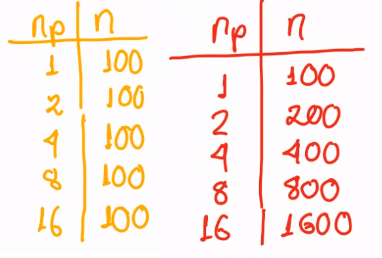 np n
1 100
2 100
4 100
8 100
16 100
np n
1 100
2 200
4 400
8 800
16 1600